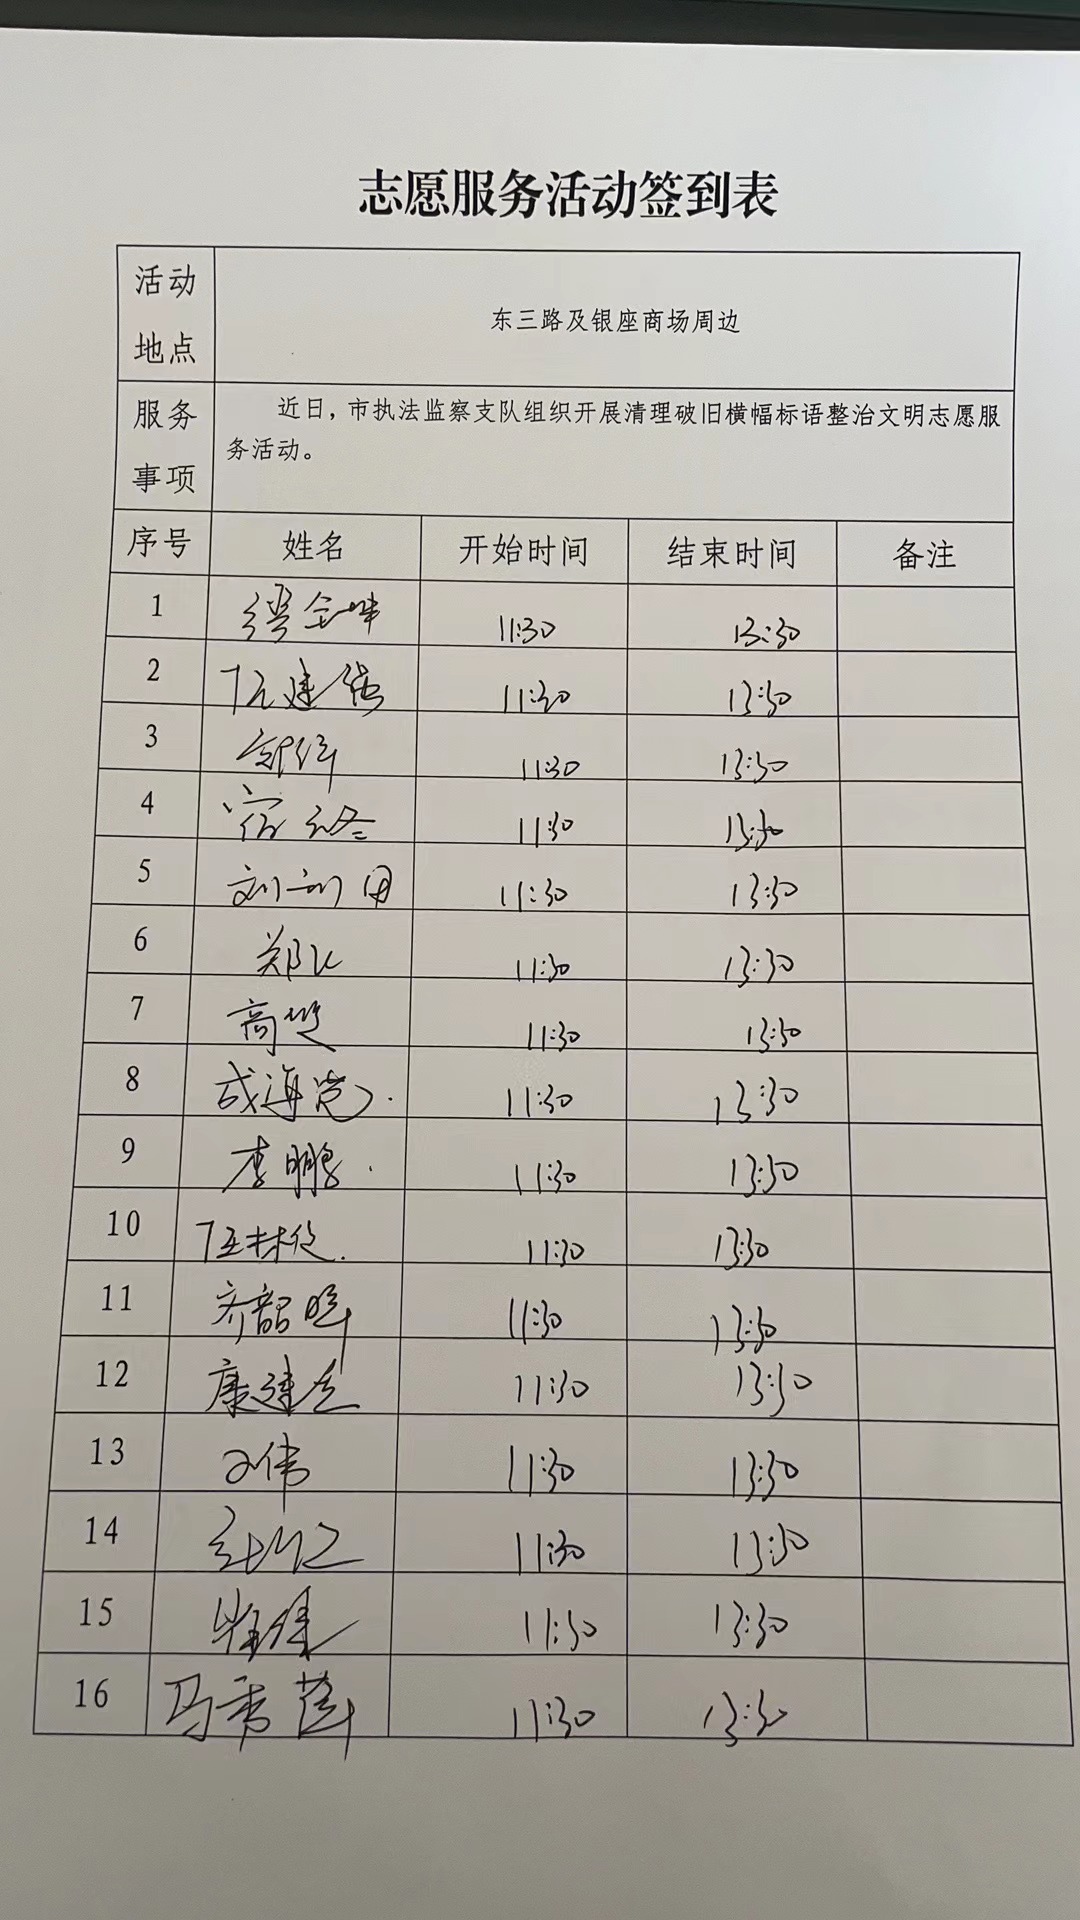 志愿服务活动签到表
活动地点 东三路及银座商场周边
服务事项 近日,市执法监察支队组织开展清理破旧横幅标语整治文明志愿服
务活动。
序号 姓名 开始时间 结束时间 备注
1 11:30 13:30
2 11:30 13:30
3 11:30 13:30
4 11:30 13:30
5 11:30 13:30
6 11:30 13:30
7 高 11:30 13:30
8 成海 11:30 13:30
9 李鹏 11:30 13:30
10 11:30 13:30
11 齐韶晖 11:30 13:30
12 康建 11:30 13:30
13 伟 11:30 13:30
14 11:30 13:30
15 11:30 13:30
16 马希 11:30 13:30